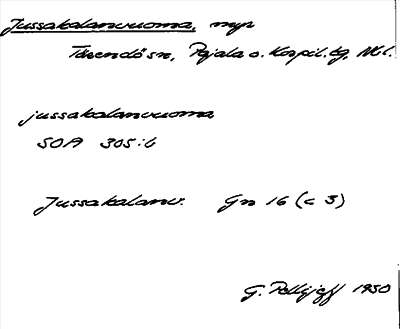 Jussakalanvuoma, myr
Tärendö sn, Pajala o. Korpil. tg, Nbl.
jussakalanvuoma
SOA 305:6
Jussakalanv. Gn 16 (c 3)
G. Pellijeff 1950